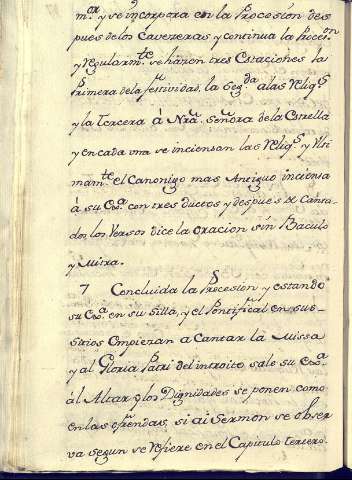 m.or y se incorpora en la Procesion des
pues de los Cavezeras y continua la Proces.on
y regularm.te se hazen tres Estaciones la
Primera de la festividad, la Seg.da a las Reliq.s
y la Tercera á Nrã. Señora de la Estrella
y en cada una se inciensan las Reliq.s y Ulti
mam.te el Canonigo mas Antiguo inciensa
á su Ex.a con tres ductos y despues de Canta
dos los Versos dice la Oracion sin Baculo
y Mitra.
7 Concluida la Procesion y estando
su Ex.a en su silla, y el Pontifical en sus
sitios empiezan a Cantar la Missa
y al Gloria Patri del introito sale su Ex.a
al Altar y los Dignidades se ponen como
en las ofrendas, si ai Sermon se obser
va segun se refiere en el Capitulo tercero.